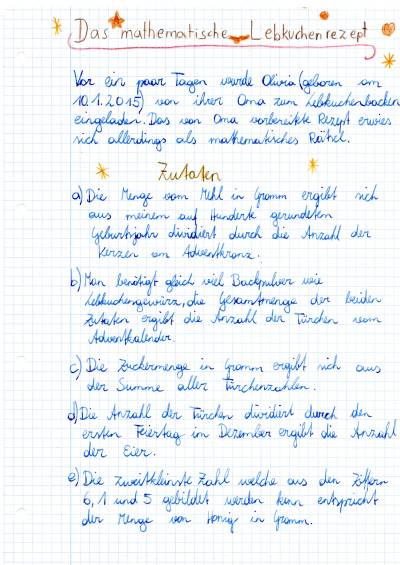 Das mathematische Lebkuchenrezept
Vor ein paar Tagen wurde Olivia (geboren am
10.1.2015) von ihrer Oma zum Lebkuchenbacken
eingeladen. Das von Oma vorbereitete Rezept erwies
sich allerdings als mathematisches Rätsel.
Zutaten
a) Die Menge vom Mehl in Gramm ergibt sich
aus meinem auf Hunderte gerundeten
Geburtsjahr dividiert durch die Anzahl der
Kerzen am Adventkranz.
b) Man benötigt gleich viel Backpulver wie
Lebkuchengewürz, die Gesamtmenge der beiden
Zutaten ergibt die Anzahl der Türchen vom
Adventkalender.
c) Die Zuckermenge in Gramm ergibt sich aus
der Summe aller Türchenzahlen.
d) Die Anzahl der Türchen dividiert durch den
ersten Feiertag im Dezember ergibt die Anzahl
der Eier.
e) Die zweitkleinste Zahl welche aus den Ziffern
6, 1 und 5 gebildet werden kann entspricht
der Menge von Honig in Gramm.